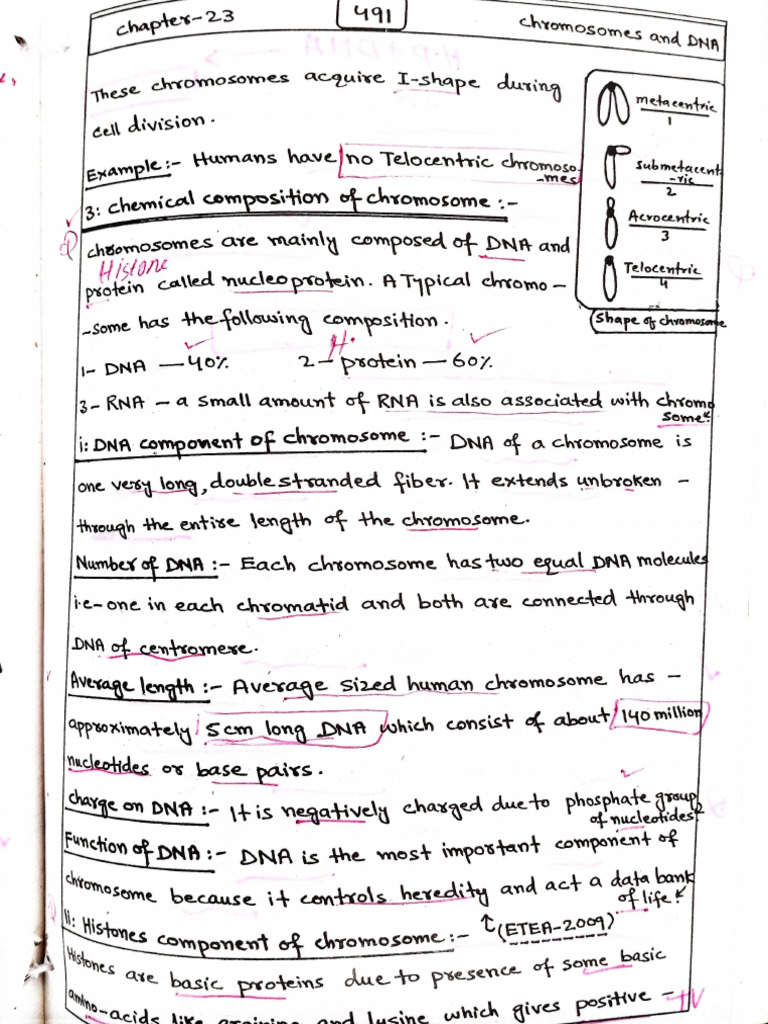 chapter-23
491
chromosomes and DNA
These chromosomes acquire I-shape during
cell division.
Example:- Humans have no Telocentric chromoso-
-mes
3: chemical composition of chromosome :-
chromosomes are mainly composed of DNA and
Histone
protein called nucleoprotein. A Typical chromo-
-some has the following composition.
H.
1- DNA — 40% 2- protein — 60%
3- RNA - a small amount of RNA is also associated with chromo
some.
i: DNA component of chromosome :- DNA of a chromosome is
one very long, double stranded fiber. It extends unbroken -
through the entire length of the chromosome.
Number of DNA :- Each chromosome has two equal DNA molecules
i.e-one in each chromatid and both are connected through
DNA of centromere.
Average length :- Average sized human chromosome has -
approximately 5cm long DNA which consist of about 140 million
nucleotides or base pairs.
charge on DNA :- It is negatively charged due to phosphate group
of nucleotides
Function of DNA :- DNA is the most important component of
chromosome because it controls heredity and act a data bank
of life.
(ETEA-2009)
II: Histones component of chromosome :-
Histones are basic proteins due to presence of some basic
amino-acids like arginine and lysine which gives positive - +V
metacentric
1
Submetacent
-ric
2
Acrocentric
3
Telocentric
4
Shape of chromosome